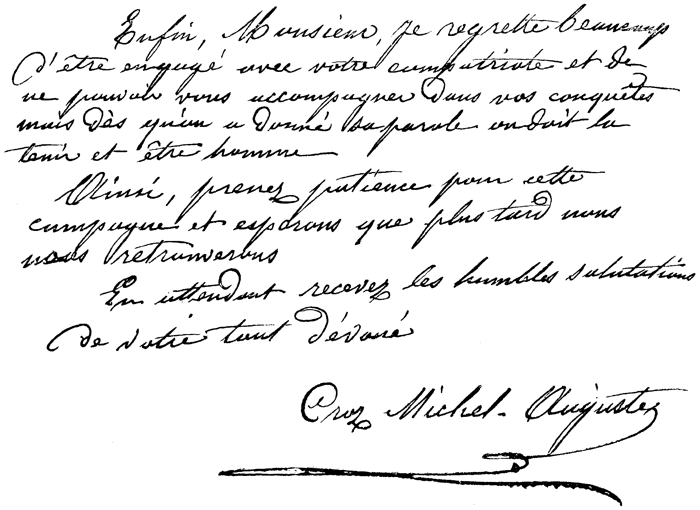 Enfin, Monsieur, je regrette beaucoup
d'être engagé avec votre compatriote et de
ne pouvoir vous accompagner dans vos conquêtes
mais dès qu'on a donné sa parole on doit la
tenir et être homme
Ainsi, prenez patience pour cette
campagne et esperons que plus tard nous
nous retrouverons
En attendant recevez les humbles salutations
de votre tout dévoué
Croz Michel-Auguste